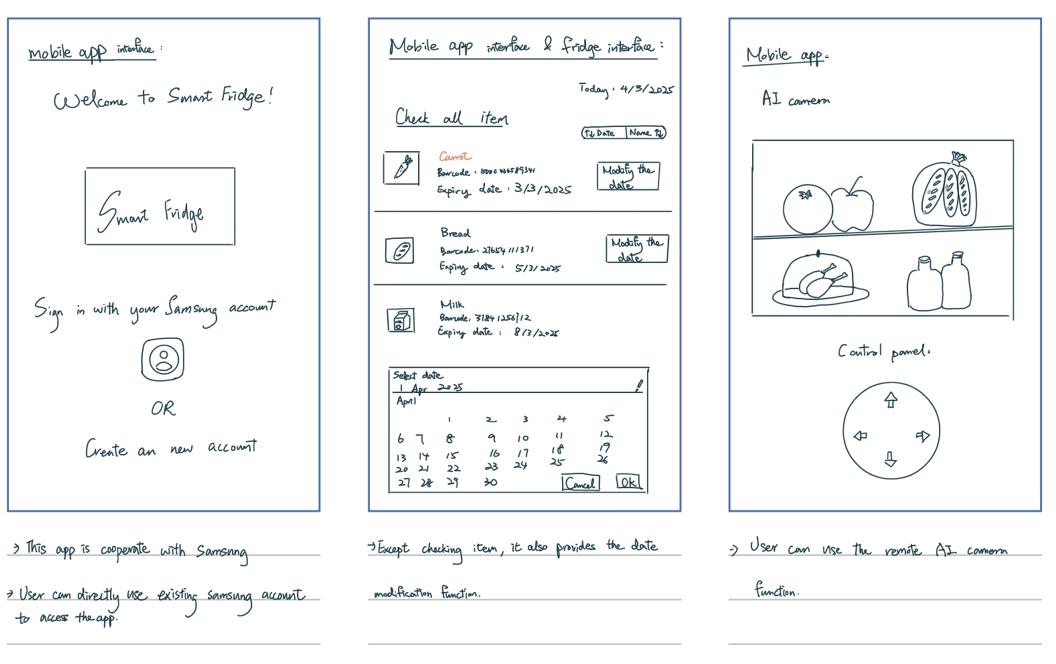 mobile app interface :
Welcome to Smart Fridge!
Smart Fridge
Sign in with your Samsung account
OR
Create an new account
→ This app is cooperate with Samsung
→ User can directly use existing samsung account
to access the app.
Mobile app interface & fridge interface :
Today : 4/3/2025
Check all item
↑↓ Date | Name ↑↓
Carrot
Barcode :
Expiry date : 3/3/2025
Modify the
date
Bread
Barcode: 27654111371
Expiry date : 5/3/2025
Modify the
date
Milk
Barcode: 31841256712
Expiry date : 8/3/2025
Select date
1 Apr 2025
April
1 2 3 4 5
6 7 8 9 10 11 12
13 14 15 16 17 18 19
20 21 22 23 24 25 26
27 28 29 30
Cancel OK
→ Except checking item, it also provides the date
modification function.
Mobile app.
AI camera
Control panel.
→ User can use the remote AI camera
function.